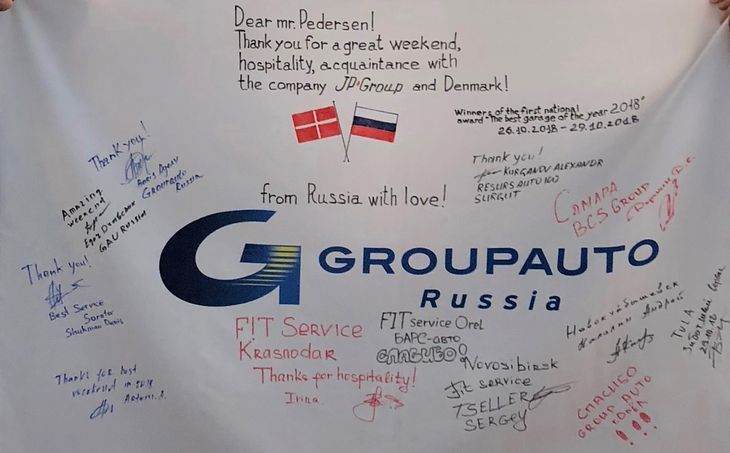 Dear mr. Pedersen!
Thank you for a great weekend,
hospitality, acquaintance with
the company JP·Group and Denmark!
Winners of the first national
award "The best garage of the year 2018"
26.10.2018 - 29.10.2018
Thank you!
Boris
GROUPAUTO
RUSSIA
Thank you!
KURGANOV ALEXANDR
RESURS AUTO
SURGUT
Amazing
weekend
Egor
GAU RUSSIA
from Russia with love!
САМАРА
BCS GROUP
GROUPAUTO
Russia
Thank you!
Best Service
Saratov
Shukman Denis
FIT SERVICE
Krasnodar
Thanks for hospitality!
Irina
FIT service Orel
БАРС-авто
СПАСИБО!
Novosibirsk
fit service
TSELLER
SERGEY
Новокуйбышевск
Андрей
TULA
29.10.18
Thanks for best
in 2018
Artem. A.
СПАСИБО
GROUP AUTO
!!!